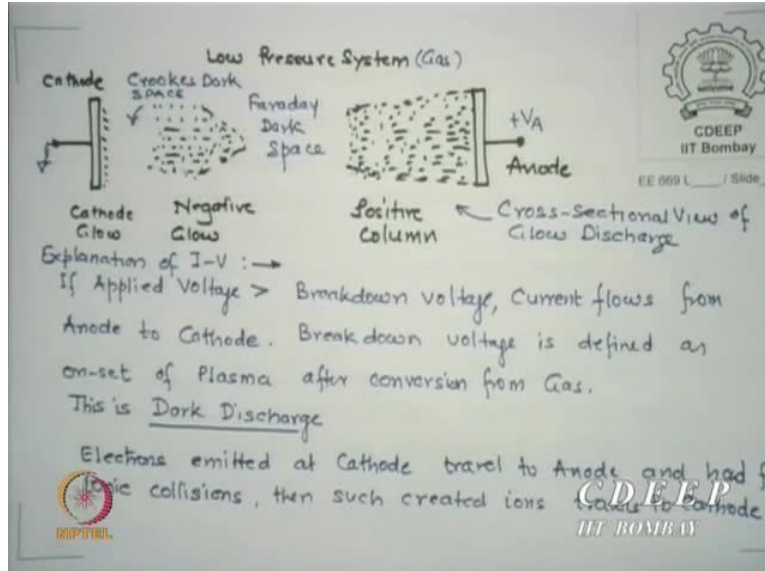 Low Pressure System (Gas)
Cathode
Crookes Dark
SPACE
Faraday
Dark
Space
+VA
Anode
CDEEP
IIT Bombay
EE 669 L____ / Slide_
Cathode
Glow
Negative
Glow
Positive
Column
Cross-Sectional View of
Glow Discharge
Explanation of I-V :→
If Applied Voltage > Breakdown voltage, Current flows from
Anode to Cathode. Break down voltage is defined as
on-set of Plasma after conversion from Gas.
This is Dark Discharge
Electrons emitted at Cathode travel to Anode and had
Ionic collisions, then such created ions travels to Cathode
NPTEL
CDEEP
IIT BOMBAY